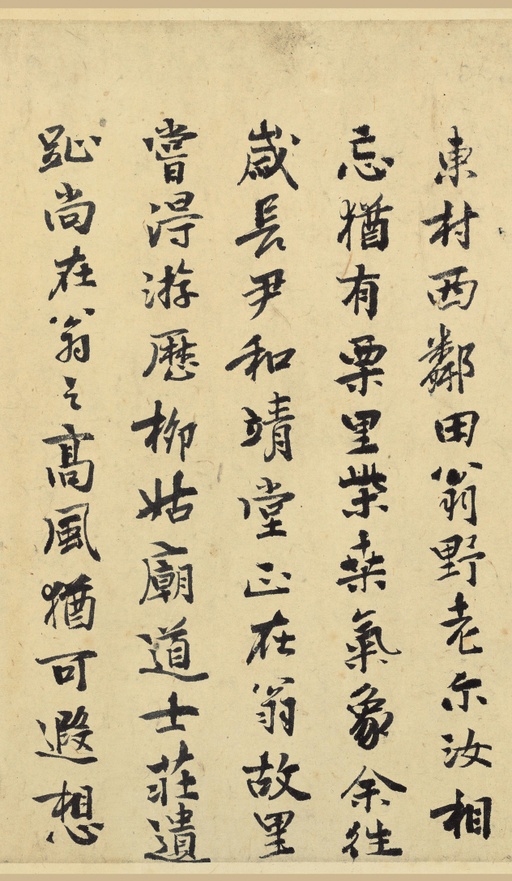 東村西鄰田翁野老尔汝相
忘猶有栗里柴桑氣象余往
歲長尹和靖堂正在翁故里
嘗得游歷柳姑廟道士莊遺
趾尚在翁之高風猶可遐想